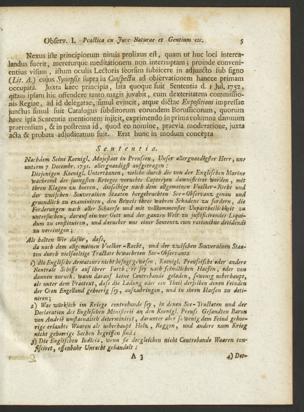 Observ. I. Practica ex Jure Naturae et Gentium etc. 5
Nexus iste principiorum nimis prolixus est, quam ut huc loci interca-
landus fuerit, meteretque meditationem non interruptam; proinde conveni-
entius visum, istum oculis Lectoris seorsim subiicere in adjuncto sub signo
(Lit. A.) cujus Synopsis supra in Conspectu ad observationem hancce primam
occupavi. Juxta haec principia, lata quoque fuit Sententia d. 1 Jul. 1752,
cujus ipsam hic offendere tanto magis juvabit, cum dexteritatem commissio-
nis Regiae, ad id delegatae, simul evincit, atque dictae Expositioni impressae
functus simul fuit Catalogus subditorum eorundem Borussicorum, quorum
haec ipsa Sententia mentionem injicit, exprimendo in primo columna damnum
praetensum, & in postrema id, quod eo nomine, praevia moderatione, juxta
acta & probata adjudicatum fuit. Erit hunc in modum concepta
Sententia.
Nachdem Seine Koenigl. Majestaet in Preussen, Unser allergnaedigster Herr, uns
unterm 7 December. 1751. allergnaedigst aufgetragen:
Diejenigen Koenigl. Unterthanen, welche durch die von der Englischen Marine
waehrend der juengsten Krieges verueebte Capturen damnificiret worden, mit
ihren Klagen zu hoeren, dieselbige nach dem allgemeinen Voelker-Recht und
der zwischen Souverainen Staaten hergebrachten See-Observanz genau und
gruendlich zu examiniren, den Beweis ihres wahren Schadens zu fordern, die
Forderungen nach aller Schaerfe und mit vollkommenster Unpartheilichkeit zu
untersuchen, darauf ein vor Gott und der ganzen Welt zu justificirendes Liqui-
dum zu constituiren, und darueber uns einer Sentenz cum rationibus decidendi
zu vereinigen;
Als halten Wir dafür, dass,
da nach dem allgemeinen Voelker-Recht, und der zwischen Souverainen Staa-
ten durch vielfaeltige Tractate bewaehrten See-Observanz
1) die Englische Armateurs nicht befugt gewesen, Koenigl. Preussische oder andere
Neutrale Schiffe auf ihrer Farth, es sey nach feindlichen Haefen, oder von
dannen zurück, wann darauf keine Contrebande geladen, so wenig ueberhaupt,
als unter dem Praetext, dass die Ladung oder ein Theil derselben denen Feinden
der Cron Engelland gehoerig sey, aufzubringen, und in ihren Haefen zu deti-
niren;
2) Was würklich im Kriege contrebande sey, in denen See-Tractaten und der
Declaration des Englischen Ministerii an den Koenigl. Preuss. Gesandten Baron
von Andrié umstaendlich determiniret, darunter aber so wenig dem Feind gehoe-
rige erlaubte Waaren als ueberhaupt Holz, Roggen, und andere zum Krieg
nicht gehoerige Sachen begriffen sind;
3) Die Englischen Judicia, wenn sie dergleichen nicht Contrebande Waaren con-
fisciret, offenbahr Unrecht gehandelt;
A 3 4) Der-